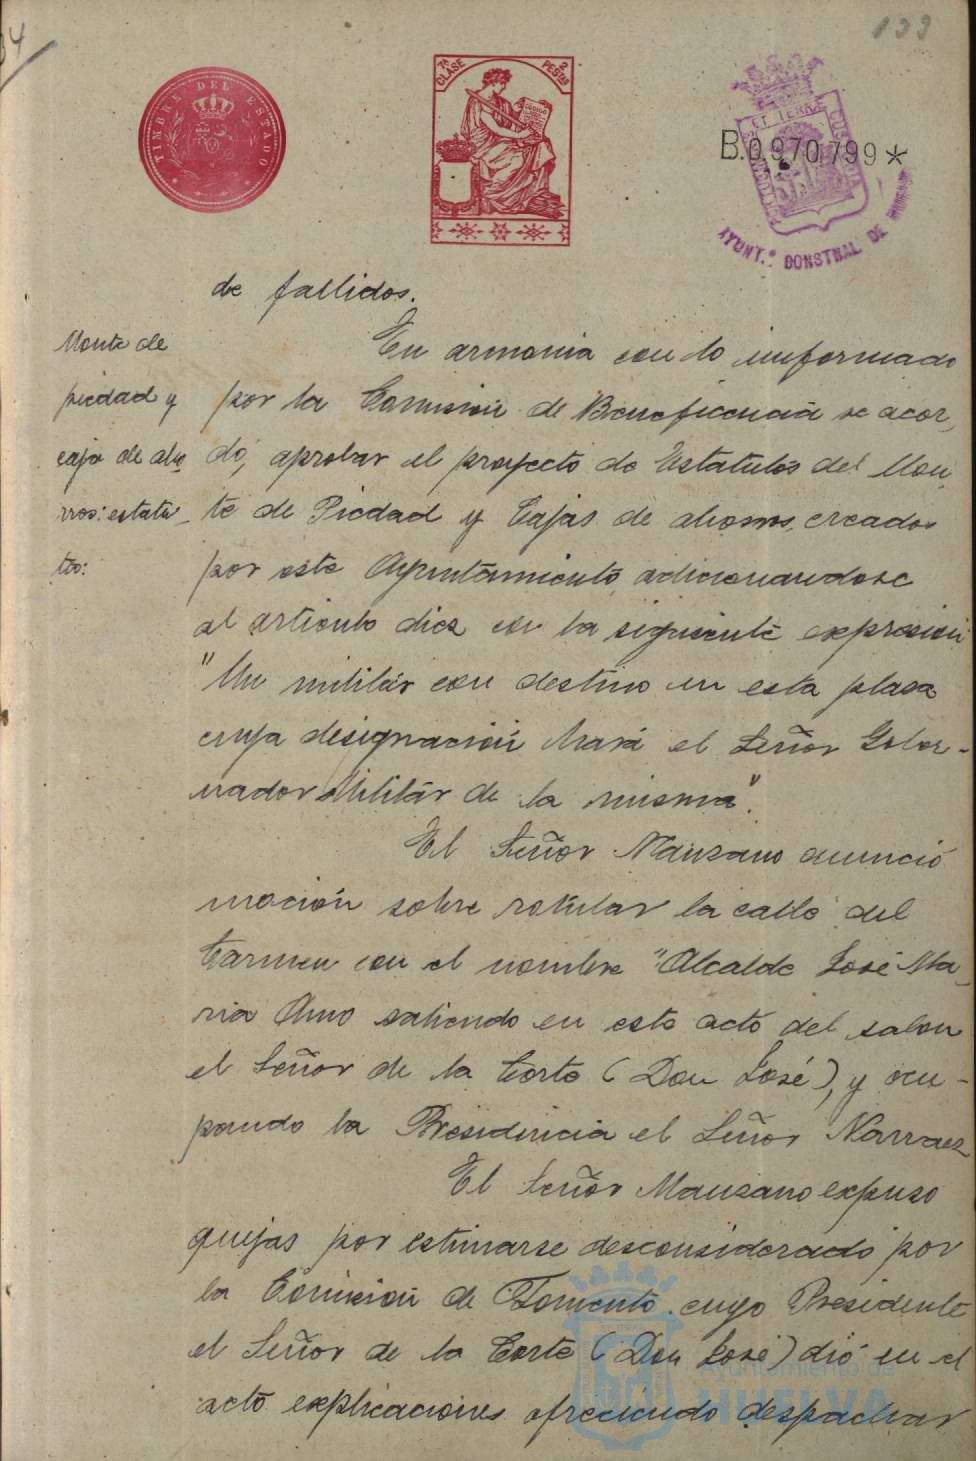 34
133
TIMBRE DEL ESTADO
7ª CLASE
2 PESTAS
B.0.970.799*
ET TERRÆ CUSTODIA
AYUNTº. CONSTNAL DE HUELVA
de fallidos.
Monte de
piedad y
caja de aho
rros: estatu_
tos:
En armonia con lo imformado
por la Comisión de Beneficencia se acor_
dó, aprobar el proyecto de Estatutos del Mon_
te de Piedad y Cajas de ahorros, creados
por este Ayuntamiento, adicionandose
al articulo diez con la siguiente expresion
"Un militar con destino en esta plaza
cuya designación hará el Señor Gober-
nador Militar de la misma".
El Señor Manzano anunció
moción sobre rotular la calle del
Carmen con el nombre "Alcalde José Ma_
ria Amo saliendo en este acto del salon
el Señor de la Corte (Don José), y ocu-
pando la Presidencia el Señor Narraez
El Señor Manzano expuso
quejas por estimarse desconsiderado por
la Comision de Fomento. cuyo Presidente
el Señor de la Corte (Don José) dió en el
acto explicaciones ofreciendo despachar
Ayuntamiento de
HUELVA